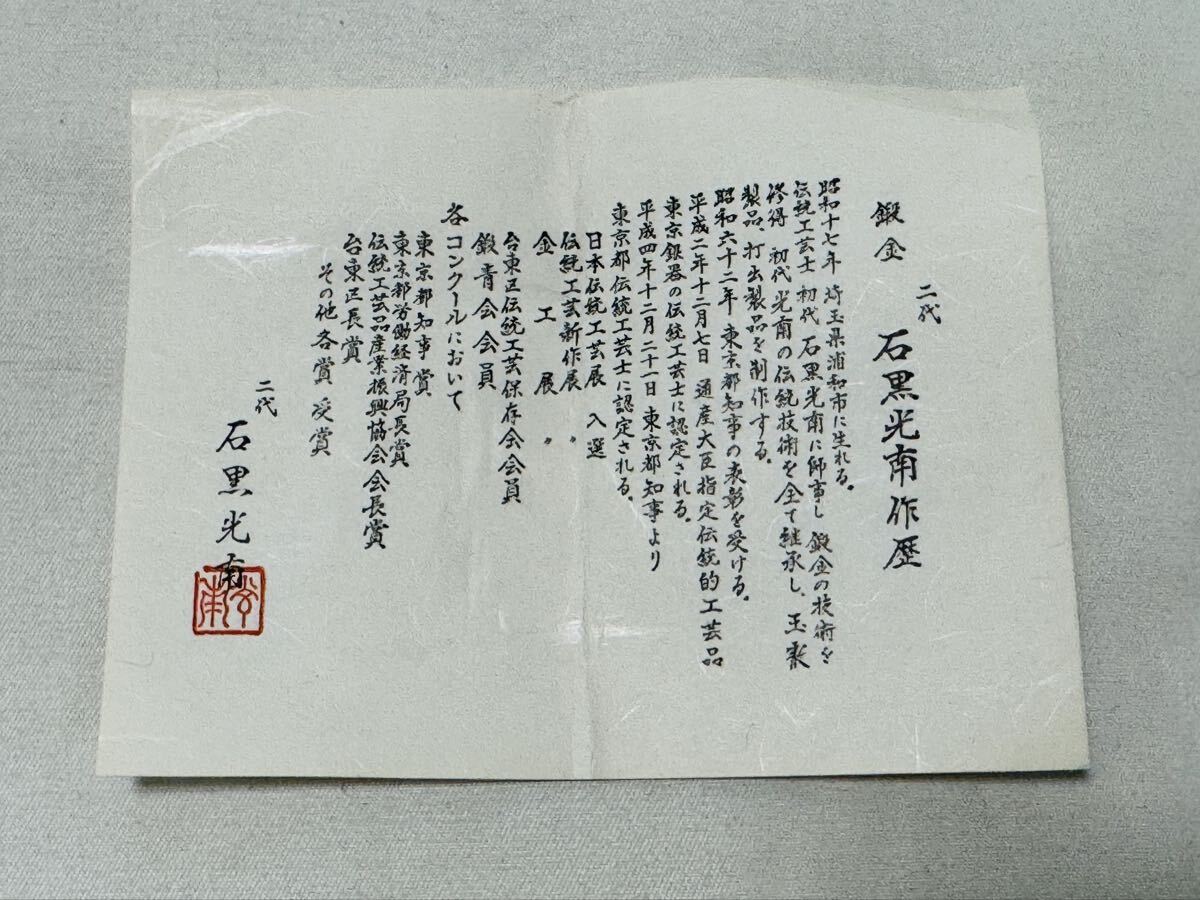 鍛金 二代 石黒光南作歴
昭和十七年 埼玉県浦和市に生れる。
伝統工芸士 初代 石黒光南に師事し 鍛金の技術を
修得 初代光南の伝統技術を全て継承し、玉
製品、打出製品を制作する。
昭和六十二年 東京都知事の表彰を受ける。
平成二年十二月七日 通産大臣指定伝統的工芸品
東京銀器の伝統工芸士に認定される。
平成四年十二月二十一日 東京都知事より
東京都伝統工芸士に認定される。
日本伝統工芸展 入選
伝統工芸新作展 〃
金工展 〃
台東区伝統工芸保存会会員
鍛青会会員
各コンクールにおいて
東京都知事賞
東京都労働経済局長賞
伝統工芸品産業振興協会会長賞
台東区長賞
その他各賞 受賞
二代 石黒光南